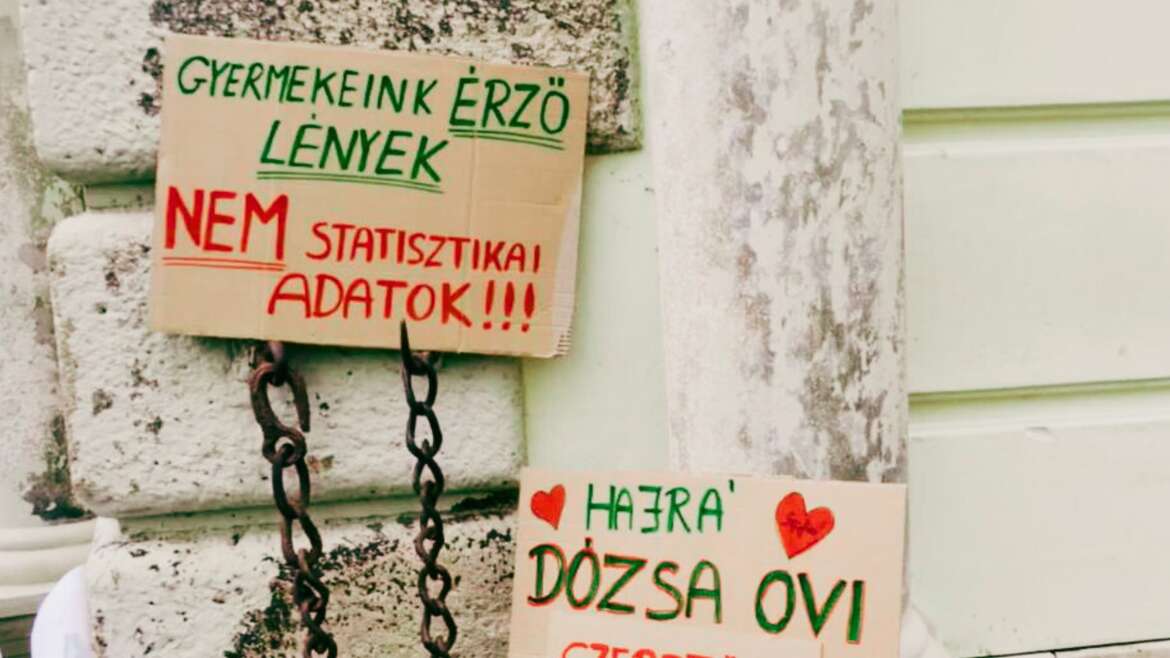 GYERMEKEINK ÉRZŐ
LÉNYEK
NEM STATISZTIKAI
ADATOK!!!
HAJRÁ
DÓZSA OVI